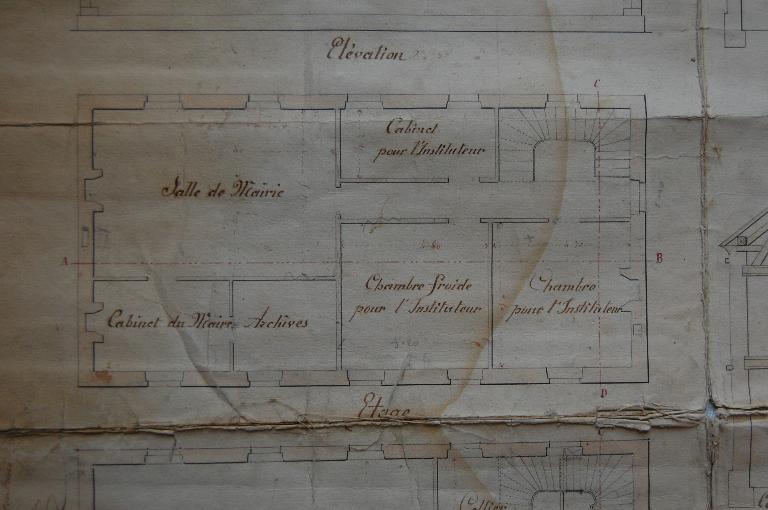 Elévation
C
Cabinet
pour l'Instituteur
Salle de Mairie
A
B
4.60
Chambre froide
pour l'Instituteur
Chambre
pour l'Instituteur
Cabinet du Maire
Archives
D
Etage
Cellier